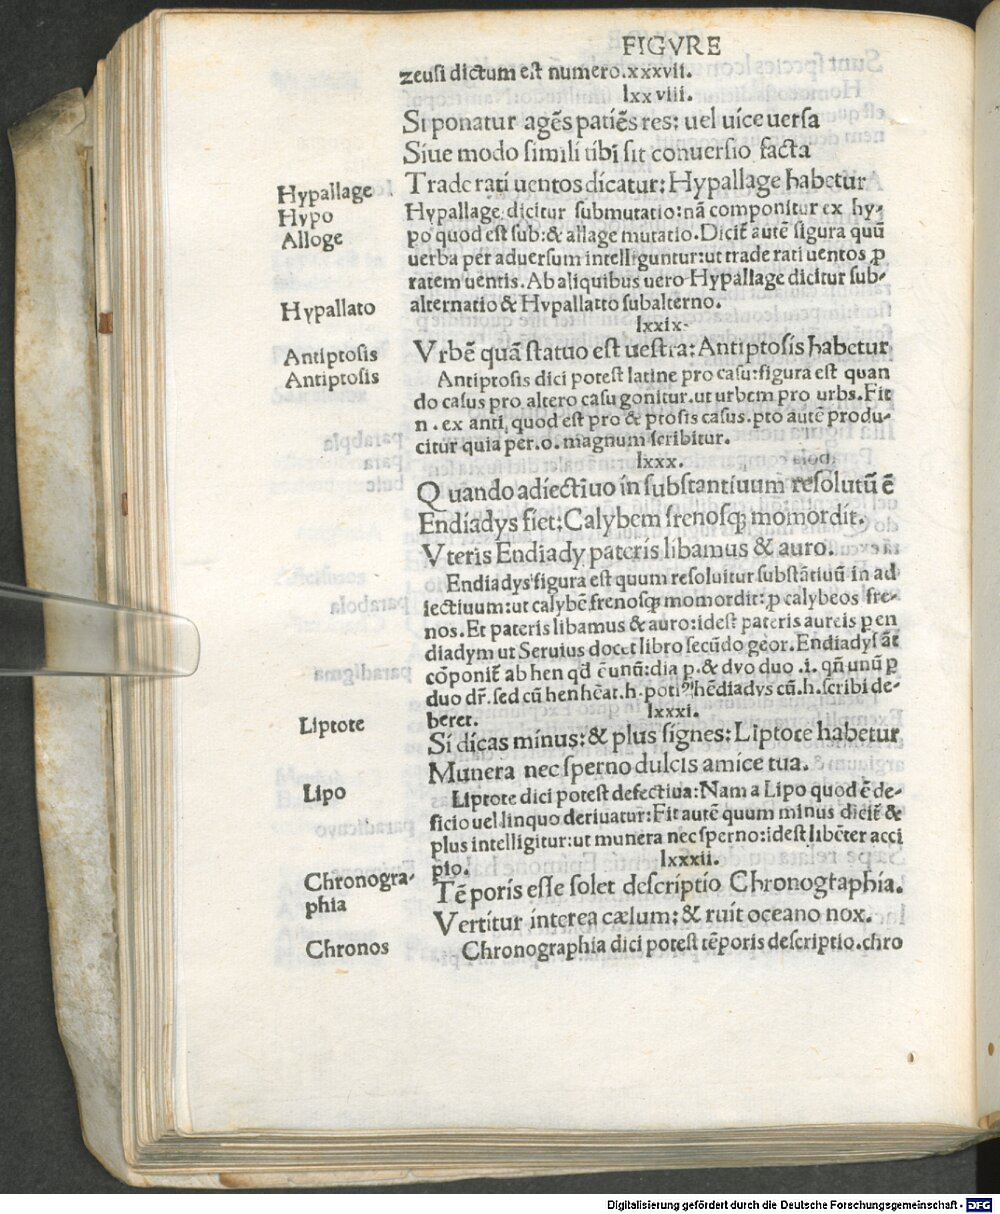 FIGVRE
zeusi dictum est numero.xxxvii.
lxxviii.
Si ponatur agēs patiēs res: uel uice uersa
Siue modo simili tibi sit conuersio facta
Hypallage
Trade rati uentos dicatur: Hypallage habetur
Hypo
Hypallage dicitur submutatio: nā componitur ex hy-
Alloge
po quod est sub: & allage mutatio. Dicit̃ autē figura quū
uerba per aduersum intelliguntur: ut trade rati uentos p
ratem uentis. Ab aliquibus uero Hypallage dicitur sub-
Hypallato
alternatio & Hypallatto subalterno.
lxxix.
Antiptosis
Vrbē quā statuo est uestra: Antiptosis habetur
Antiptosis
Antiptosis dici potest latine pro casu: figura est quan
do casus pro altero casu gonitur. ut urbem pro urbs. Fit
n. ex anti, quod est pro & ptosis casus. pto autē produ-
citur quia per. o. magnum scribitur.
lxxx.
Quando adiectiuo in substantiuum resolutū ē
Endiadys fiet: Calybem frenosq; momordit.
Vteris Endiady pateris libamus & auro.
Endiadys figura est quum resoluitur substātiuū in ad
iectiuum: ut calybē frenosq; momordit: p calybeos fre-
nos. Et pateris libamus & auro: idest pateris aureis p en
diadym ut Seruius docet libro secūdo geor. Endiadys āt
cōponit̃ ab hen qd ē unū: dia p. & dvo duo .i. qn̄ unū p
duo dr̄. sed cū hen hēat. h. poti⁹ hēdiadys cū. h. scribi de-
beret.
lxxxi.
Liptote
Si dicas minus: & plus signes: Liptote habetur
Munera nec sperno dulcis amice tua.
Lipo
Liptote dici potest defectiua: Nam a Lipo quod ē de-
ficio uel linquo deriuatur: Fit autē quum minus dicit̃ &
plus intelligitur: ut munera nec sperno: idest libēter acci
pio.
lxxxii.
Chronogra-
phia
Tēporis esse solet descriptio Chronographia.
Vertitur interea cælum: & ruit oceano nox.
Chronos
Chronographia dici potest tēporis descriptio. chro
Digitalisierung gefördert durch die Deutsche Forschungsgemeinschaft - DFG